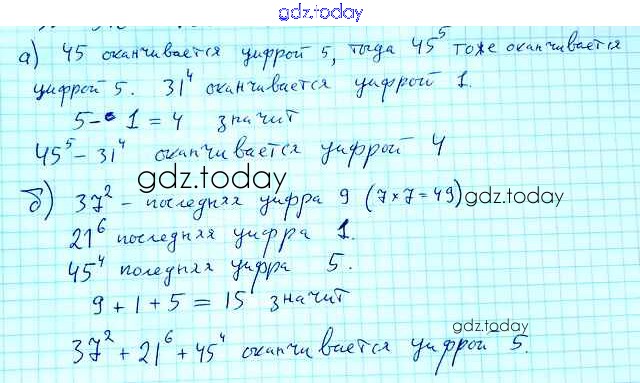 gdz.today
а) 45 оканчивается цифрой 5, тогда 45⁵ тоже оканчивается
цифрой 5. 31⁴ оканчивается цифрой 1.
5 - 1 = 4 значит
45⁵ - 31⁴ оканчивается цифрой 4
gdz.today
б) 37² - последняя цифра 9 (7×7=49) gdz.today
21⁶ последняя цифра 1.
45⁴ поледняя цифра 5.
9 + 1 + 5 = 15 значит
gdz.today
37² + 21⁶ + 45⁴ оканчивается цифрой 5.